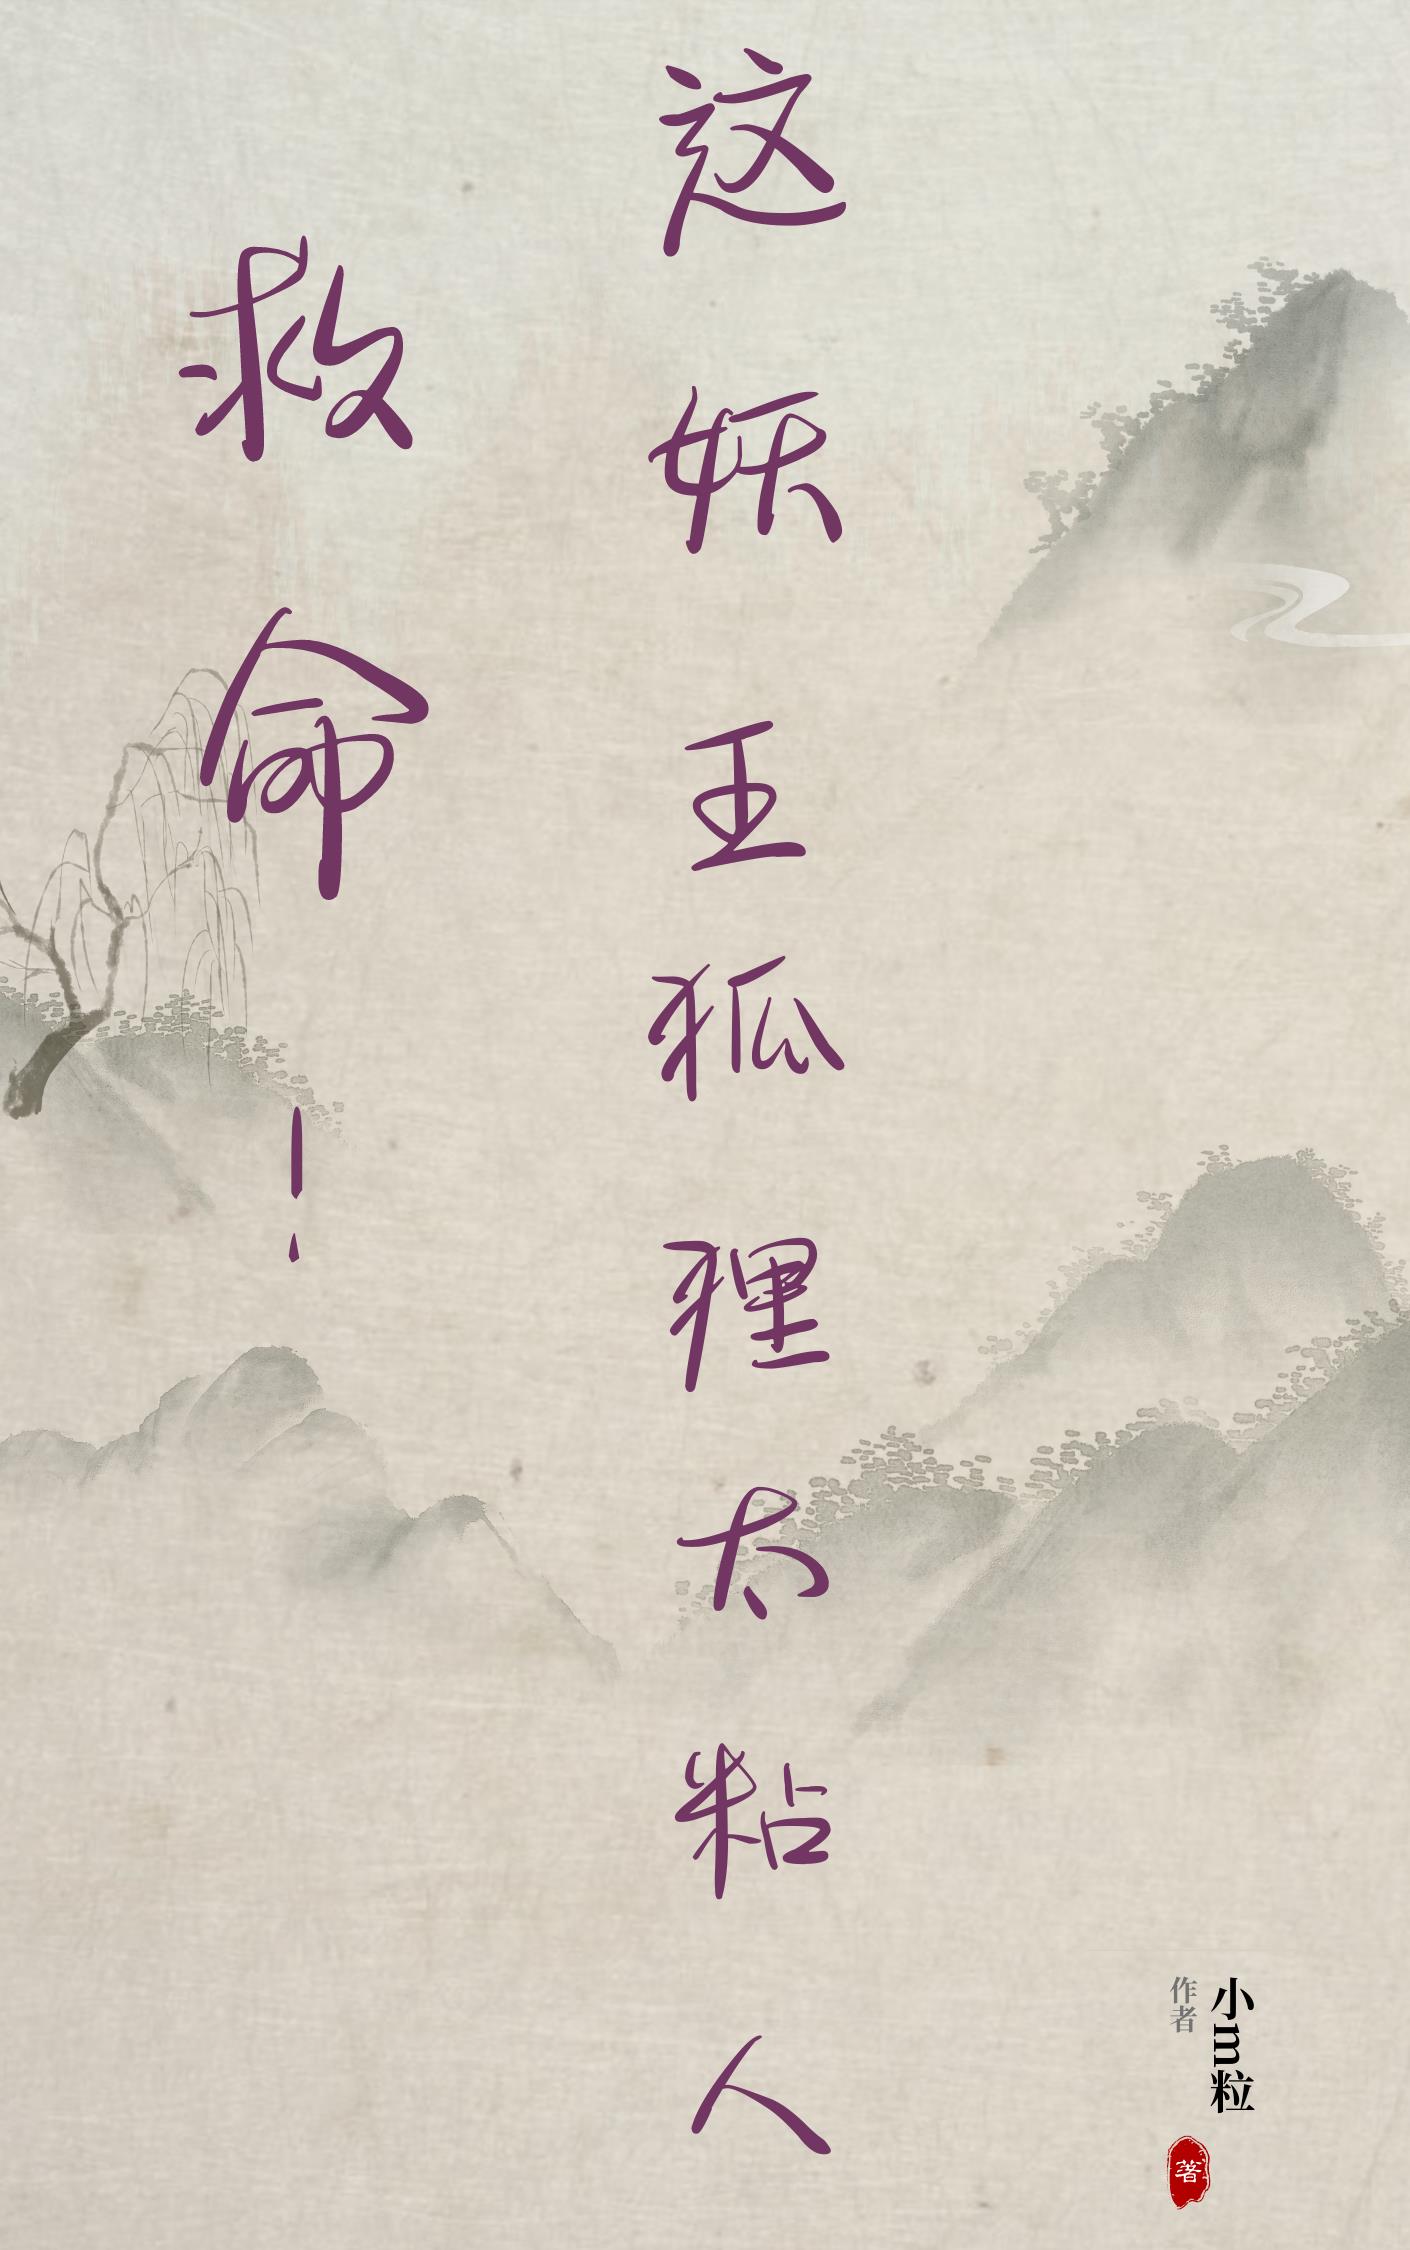 救命！
这妖王狐狸太粘人
小m粒
作者
著